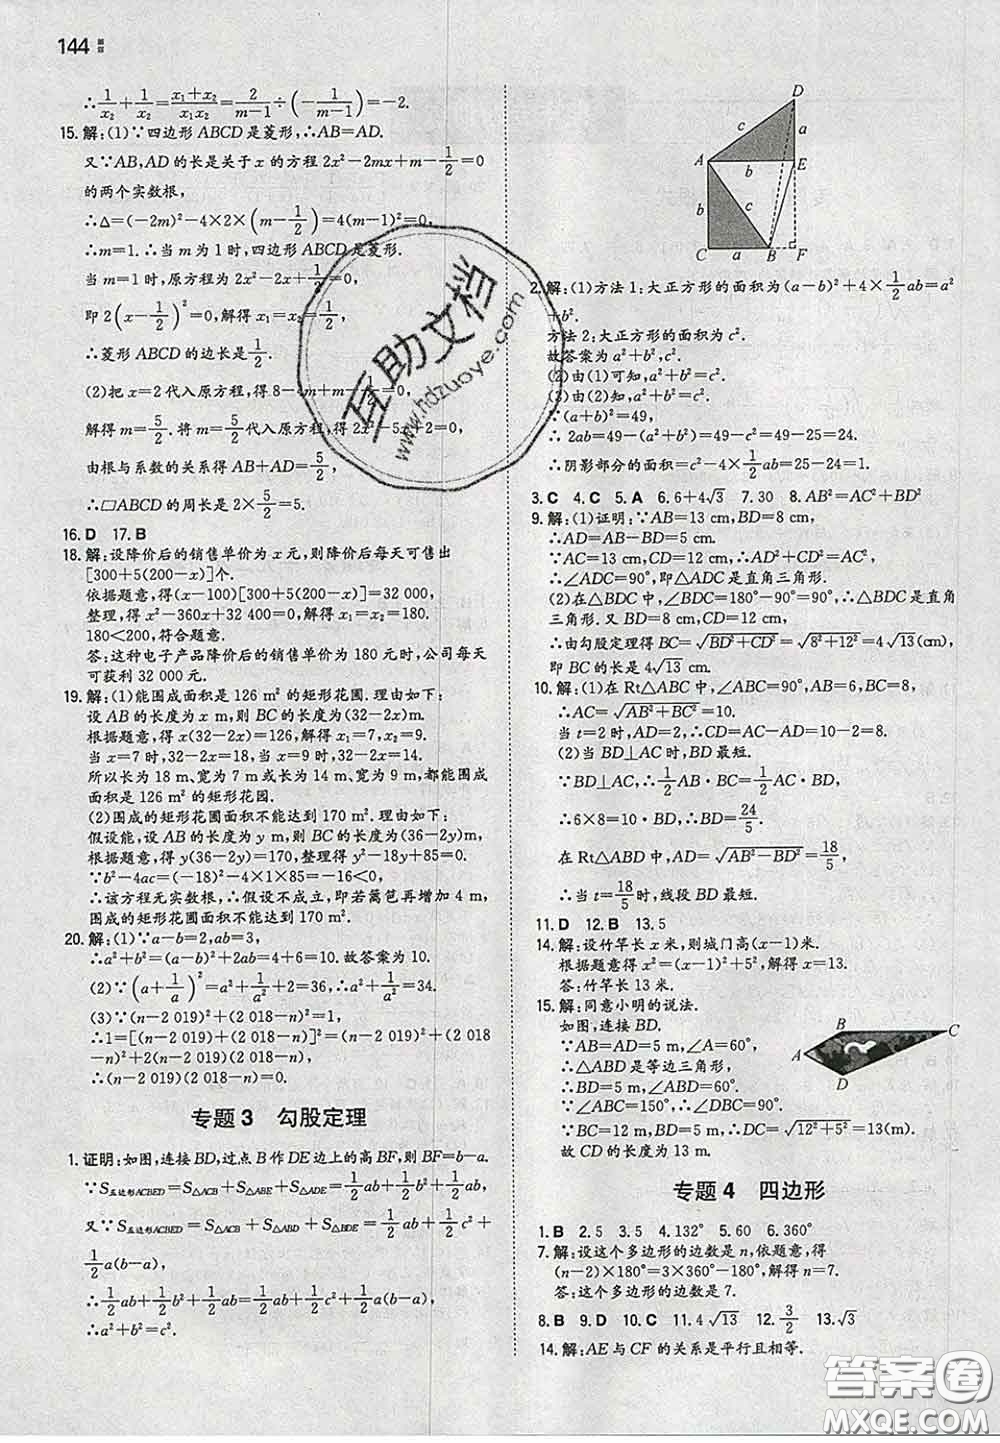 144
∴1/x₂+1/x₂=(x₁+x₂)/(x₁x₂)=2/(m-1)÷(-1/(m-1))=-2.
15.解:(1)∵四边形ABCD是菱形,∴AB=AD.
又∵AB,AD的长是关于x的方程2x²-2mx+m-1/2=0
的两个实数根,
∴Δ=(-2m)²-4×2×(m-1/2)=4(m-1)²=0,
∴m=1.∴当m为1时,四边形ABCD是菱形.
当m=1时,原方程为2x²-2x+1/2=0,
即2(x-1/2)²=0,解得x₁=x₂=1/2,
∴菱形ABCD的边长是1/2.
(2)把x=2代入原方程,得8-4m+m-1/2=0,
解得m=5/2.将m=5/2代入原方程,得2x²-5x+2=0,
由根与系数的关系得AB+AD=5/2,
∴□ABCD的周长是2×5/2=5.
16.D 17.B
18.解:设降价后的销售单价为x元,则降价后每天可售出
[300+5(200-x)]个.
依据题意,得(x-100)[300+5(200-x)]=32 000,
整理,得x²-360x+32 400=0,解得x₁=x₂=180.
180<200,符合题意.
答:这种电子产品降价后的销售单价为180元时,公司每天
可获利32 000元.
19.解:(1)能围成面积是126 m²的矩形花圃.理由如下:
设AB的长度为x m,则BC的长度为(32-2x)m.
根据题意,得x(32-2x)=126,解得x₁=7,x₂=9.
当x=7时,32-2x=18,当x=9时,32-2x=14.
所以长为18 m、宽为7 m或长为14 m、宽为9 m,都能围成
面积是126 m²的矩形花园.
(2)围成的矩形花圃面积不能达到170 m².理由如下:
假设能,设AB的长度为y m,则BC的长度为(36-2y)m,
根据题意,得y(36-2y)=170,整理得y²-18y+85=0.
∵b²-4ac=(-18)²-4×1×85=-16<0,
∴该方程无实数根,∴假设不成立,即若篱笆再增加4 m,
围成的矩形花圃面积不能达到170 m².
20.解:(1)∵a-b=2,ab=3,
∴a²+b²=(a-b)²+2ab=4+6=10.故答案为10.
(2)∵(a+1/a)²=a²+1/a²+2=36,∴a²+1/a²=34.
(3)∵(n-2 019)²+(2 018-n)²=1,
∴1=[(n-2 019)+(2 018-n)]²=(n-2 019)²+(2 018
-n)²+2(n-2 019)(2 018-n)=1+2(n-2 019)(2 018-n),
∴(n-2 019)(2 018-n)=0.
专题3 勾股定理
1.证明:如图,连接BD,过点B作DE边上的高BF,则BF=b-a.
∵S五边形ACBED=S△ACB+S△ABE+S△ADE=1/2ab+1/2b²+1/2ab,
又∵S五边形ACBED=S△ACB+S△ABD+S△BDE=1/2ab+1/2c²+
1/2a(b-a),
∴1/2ab+1/2b²+1/2ab=1/2ab+1/2c²+1/2a(b-a),
∴a²+b²=c².
D
c
a
A
b
E
b
c
C
a
B
F
2.解:(1)方法1:大正方形的面积为(a-b)²+4×1/2ab=a²
+b².
方法2:大正方形的面积为c².
故答案为a²+b²,c².
(2)由(1)可知,a²+b²=c².
(3)由(2)知,a²+b²=c².
∵(a+b)²=49,
∴2ab=49-(a²+b²)=49-c²=49-25=24.
∴阴影部分的面积=c²-4×1/2ab=25-24=1.
3.C 4.C 5.A 6.6+4√3 7.30 8.AB²=AC²+BD²
9.解:(1)证明:∵AB=13 cm,BD=8 cm,
∴AD=AB-BD=5 cm.
∵AC=13 cm,CD=12 cm,∴AD²+CD²=AC²,
∴∠ADC=90°,即△ADC是直角三角形.
(2)在△BDC中,∠BDC=180°-90°=90°,∴△BDC是直角
三角形.又BD=8 cm,CD=12 cm,
∴由勾股定理得BC=√(BD²+CD²)=√(8²+12²)=4√13(cm),
即BC的长是4√13 cm.
10.解:(1)在Rt△ABC中,∠ABC=90°,AB=6,BC=8,
∴AC=√(AB²+BC²)=10.
当t=2时,AD=2,∴CD=AC-AD=10-2=8.
(2)当BD⊥AC时,BD最短.
∵BD⊥AC,∴1/2AB·BC=1/2AC·BD,
∴6×8=10·BD,∴BD=24/5.
在Rt△ABD中,AD=√(AB²-BD²)=18/5,
∴当t=18/5时,线段BD最短.
11.D 12.B 13.5
14.解:设竹竿长x米,则城门高(x-1)米.
根据题意得x²=(x-1)²+5²,解得x=13.
答:竹竿长13米.
15.解:同意小明的说法.
如图,连接BD.
∵AB=AD=5 m,∠A=60°,
∴△ABD是等边三角形,
∴BD=5 m,∠ABD=60°.
∵∠ABC=150°,∴∠DBC=90°.
∵BC=12 m,BD=5 m,∴DC=√(12²+5²)=13(m).
故CD的长度为13 m.
B
C
A
D
专题4 四边形
1.B 2.5 3.5 4.132° 5.60 6.360°
7.解:设这个多边形的边数是n,依题意,得
(n-2)×180°=3×360°-180°,解得n=7.
答:这个多边形的边数是7.
8.B 9.D 10.C 11.4√13 12.3/2 13.√3
14.解:AE与CF的关系是平行且相等.
互助文档
www.hdzuoye.com
答案圈
MXQE.COM